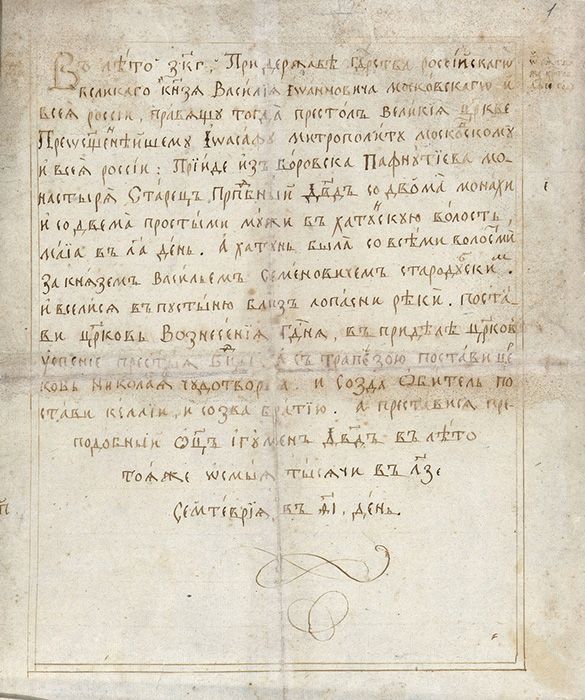 Въ лѣто ҂зкг, При державѣ гдⷭ҇рства россїйскагѡ
великаго кнѧзѧ Василїѧ Іѡанновича московскагѡ и
всеѧ россїи, правѧщу тогда престолъ великїѧ цр҃кве
Преѡсщ҃еннѣйшему Іѡасафу митрополиту москоⷡскому
и всеѧ россїи: Прїиде изъ боровска Пафнутїева мо-
настырѧ Старецъ Прпⷣбный Дв҃дъ со двѣма монахи
и со двема простыми мужи въ хатуⷩскую волость,
маїа въ л҃а день. А хатунь была со всѣми волостми
за кнѧземъ Васильемъ Семеновичемъ стародубскиⷨ.
и вселисѧ въ пустыню близъ лопасни рѣки. поста-
ви цр҃ковь Вознесенїѧ Гдⷭ҇нѧ, въ придѣлѣ цр҃ковь
успенїе прест҃ыѧ бц҃ы. а съ трапезою постави це҃р
ковь Николаѧ чудотворца. и созда ѡбитель по
стави келлїи, и созва братїю. а престависѧ пре-
подобный ѻц҃ъ ігуменъ Дв҃дъ въ лѣто
тоѧже ѡсмыѧ тысѧчи въ л҃зе
Семтеврїѧ, въ а҃і, день.